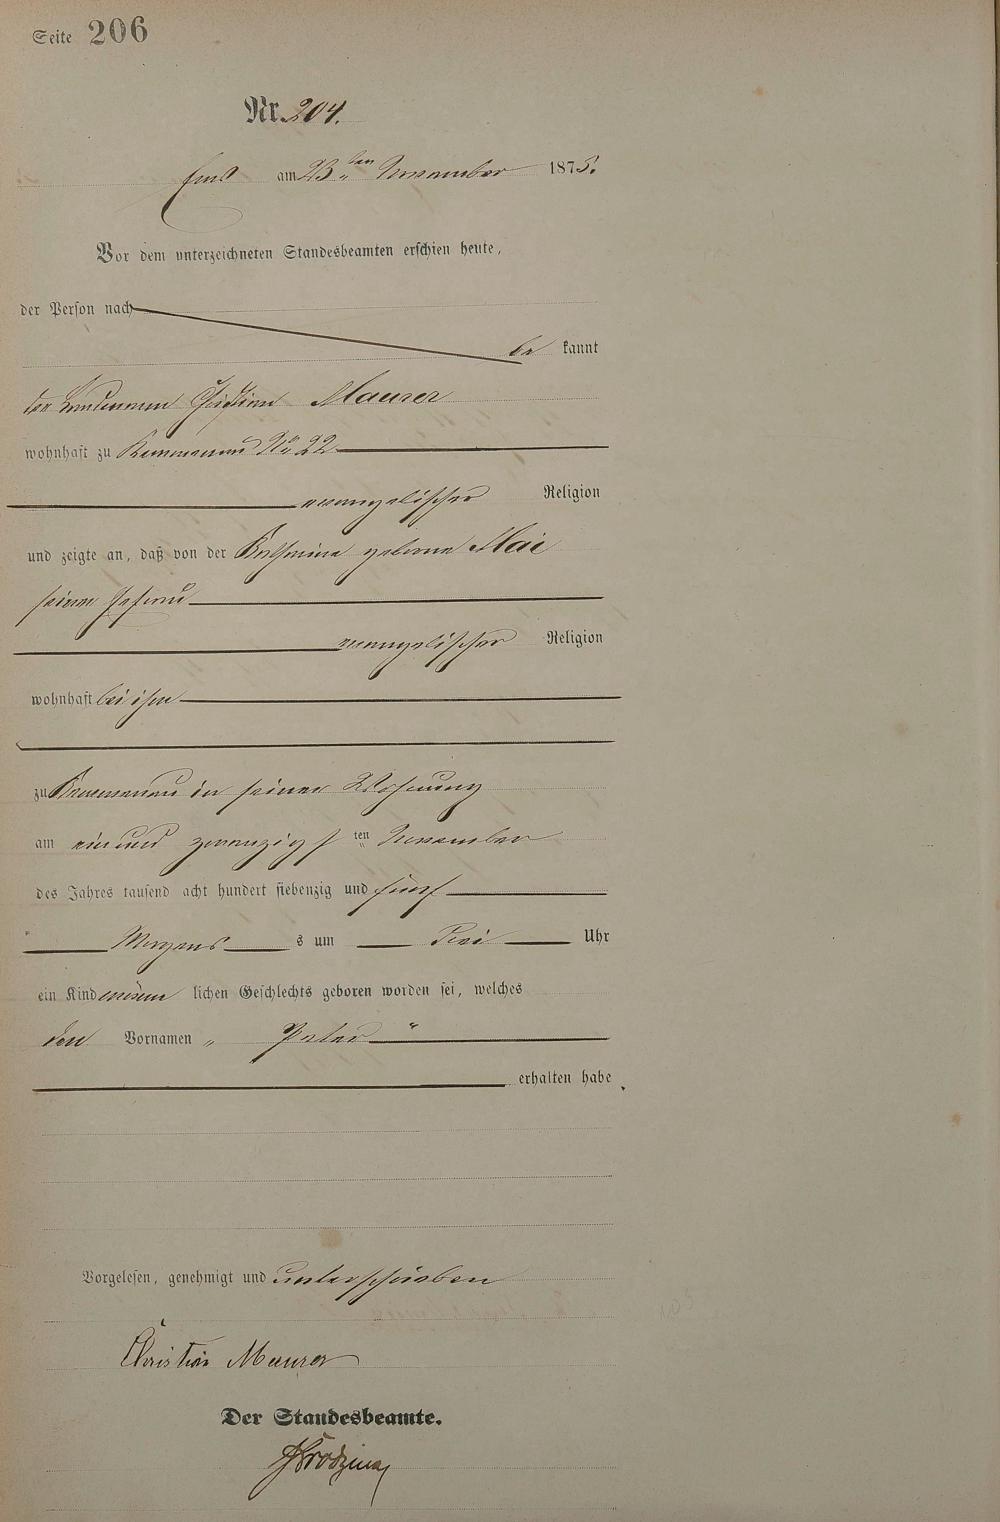 Seite 206
Nr. 204.
Ems am 23ten November 1875.
Vor dem unterzeichneten Standesbeamten erschien heute,
der Person nach
be kannt
der Christian Maurer
wohnhaft zu Kemmenau No 22
evangelischer Religion
und zeigte an, daß von der Katharina geborne Mai
seiner Ehefrau
evangelischer Religion
wohnhaft bei ihm
zu Kemmenau in seiner Wohnung
am ein und zwanzigs ten November
des Jahres tausend acht hundert siebenzig und fünf
Morgens s um Drei Uhr
ein Kind männ lichen Geschlechts geboren worden sei, welches
den Vornamen „ Peter “
erhalten habe.
Vorgelesen, genehmigt und unterschrieben
Christian Maurer
Der Standesbeamte.